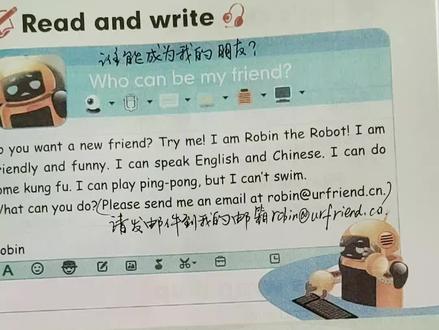 Read and write
谁能成为我的朋友?
Who can be my friend?
o you want a new friend? Try me! I am Robin the Robot! I am
riendly and funny. I can speak English and Chinese. I can do
ome kung fu. I can play ping-pong, but I can't swim.
What can you do? (Please send me an email at robin@urfriend.cn.)
请发邮件到我的邮箱robin@urfriend.cn.
obin
A